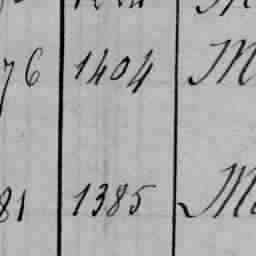 76 1404 M
81 1385 M